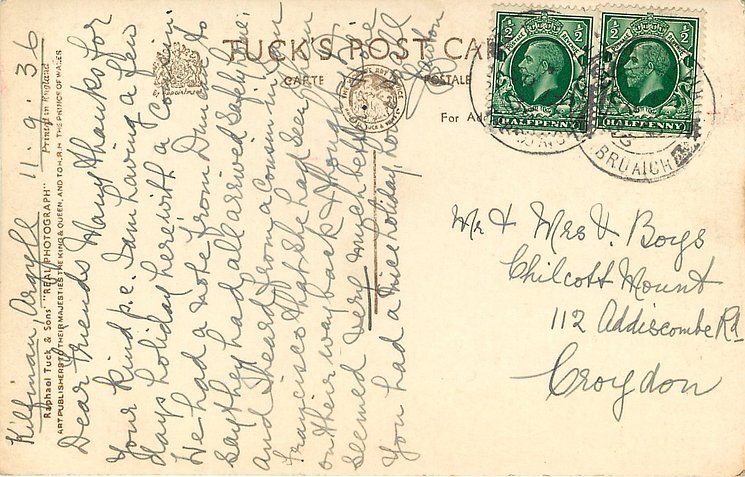 Kilfinan, Argyll 11.9.36
Dear Friends Many thanks for
your kind p.c. I am having a few
days holiday here with a cousin.
We had a note from Duncan to
say they had all arrived safely home
and I heard from a cousin in San
Francisco that she had seen them
on their way back & thought
seemed very much better
You had a nice holiday
Raphael Tuck & Sons' "REAL PHOTOGRAPH"
Printed in England
ART PUBLISHERS TO THEIR MAJESTIES THE KING & QUEEN, AND TO H.R.H. THE PRINCE OF WALES
TUCK'S POST CAR
CARTE POSTALE
For Ad
HALFPENNY
HALFPENNY
BRUAICH
Mr & Mrs V. Boys
Chilcott Mount
112 Addiscombe Rd
Croydon